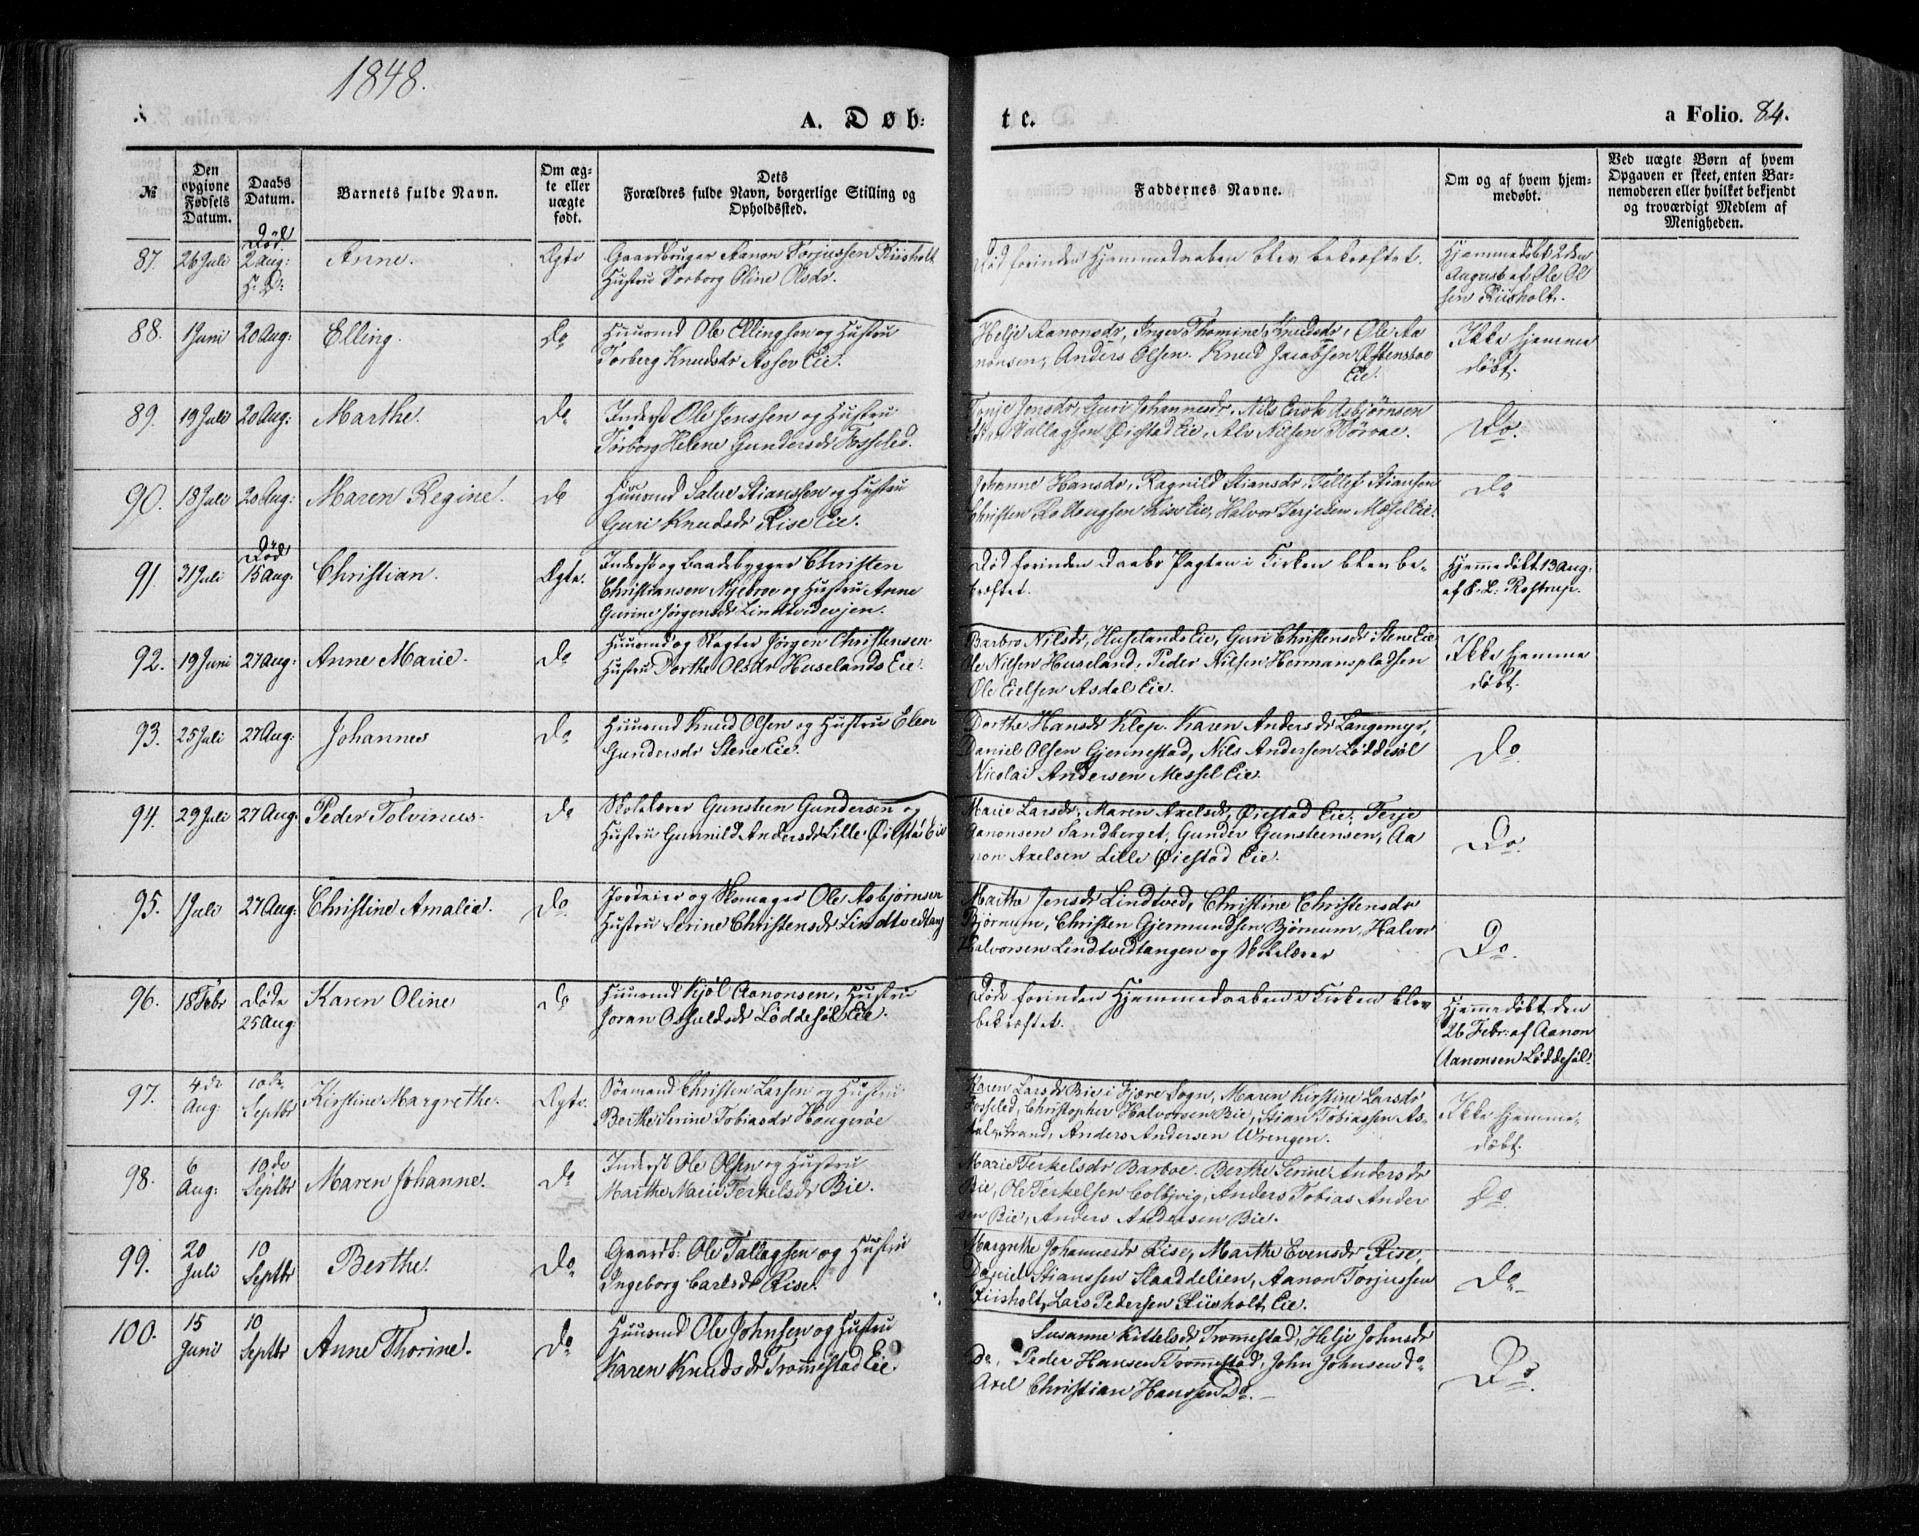 1848.
A. Døb:
te.
a Folio. 84.
№
Den opgivne Fødsels Datum.
Daabs Datum.
Barnets fulde Navn.
Om ægte eller uægte født.
Dets Forældres fulde Navn, borgerlige Stilling og Opholdssted.
Faddernes Navne.
Om og af hvem hjemmedøbt.
Ved uægte Børn af hvem Opgaven er skeet, enten Barnemoderen eller hvilket bekjendt og troværdigt Medlem af Menigheden.
87. 26 Juli Død 2 Aug: Anne. Ægte
Gaardbruger Aanon Torjussen Riisholt
Hustru Torborg Oline Olsdr.
Død forinden Hjemmedaaben blev bekræftet.
Hjemmedøbt 2den
August af Ole Ol
sen Riisholt.
88. 1 Juni 20 Aug: Elling. do
Huusmd Ole Ellingsen og Hustru
Torberg Knudsdr Assev Eie.
Helje Aanonsdr, Inger Thomine Knudsdr, Ole Aa
nonsen, Anders Olsen. Knud Jacobsen Østensboe
Eie.
Ikke hjemme
døbt.
89. 19 Juli 20 Aug: Marthe. do
Inderst Ole Jenssen og Hustru
Torborg Helene Gundersdr Fosseled.
Tonje Jensdr, Guri Johannesdr, Nils Erik Asbjørnsen
Tallagsen Øiestad Eie, Alv Nilsen Rørvae.
Do.
90. 18 Juli 20 Aug: Maren Regine. do
Huusmd Salve Stianssen og Hustru
Guri Knudsdr Rise Eie.
Johanne Hansdr, Ragnild Stiansdr, Tellef Stiansen
Christen Rollougsen Rise Eie, Halvor Terjesen Mæsel Eie.
do
91. 31 Juli Død 15 Aug: Christian. Ægte.
Inderst og Baadebygger Christen
Christiansen Nyebroe og Hustru Anne
Gurine Jørgensdr Lindtvedevjen.
Død forinden Daabs Pagten i Kirken blev be-
kræftet.
Hjemmedøbt 13 Aug:
af E. L. Rostrup.
92. 19 Juni 27 Aug: Anne Marie. do
Huusmd og Vægter Jørgen Christensen
Hustru Dorthe Olsdr Huselands Eie.
Barbro Nilsdr, Huselands Eie, Guri Christensdr Stene Eie
Ole Nilsen Huseland, Peder Nilsen Hermanspladsen
Ole Eielsen Asdal Eie.
Ikke hjemme
døbt.
93. 25 Juli 27 Aug: Johannes do
Huusmd Knud Olsen og Hustru Elen
Gundersdr Stene Eie.
Dorthe Hansdr Klep. Karen Andersdr Langemyr,
Daniel Olsen Gjennestad, Nils Andersen Løddesøl
Nicolai Andersen Messel Eie.
Do
94. 29 Juli 27 Aug: Peder Tolvinus. do
Skolelærer Gunsteen Gundersen og
Hustru Gunnild Andersdr Lille Øiestad Eie
Marie Larsdr, Maren Axelsdr, Øiestad Eie, Terje
Aanonsen Sandberget, Gunder Gunsteensen, Aa
non Axelsen Lille Øiestad Eie.
Do.
95. 1 Juli 27 Aug: Christine Amalia. do
Jordeier og Skomager Ole Asbjørnsen
Hustru Serine Christensdr Lindtvedtang
Marthe Jensdr Lindtved, Christine Christensdr
Bjørnum, Christen Gjermundsen Bjørnum, Halvor
Halvorsen Lindtvedtangen og Skolelærer
Do.
96. 18 Febr døde 25 Aug: Karen Oline do
Huusmd Kjøl Aanonsen, Hustru
Joran Osufsdr Løddesøl Eie.
Døde forinden Hjemmedaaben i Kirken blev
bekræftet.
Hjemmedøbt den
26 Febr: af Aanon
Aanonsen Løddesøl.
97. 4de Aug: 10de Septbr Kirstine Margrethe. Ægte.
Sømand Christen Larsen og Hustru
Berthe Serine Tobiasdr Hougerøe
Karen Larsdr Bie i Fjære Sogn, Maren Kirstine Larsdr
Fosseled, Christopher Halvorsen Bie, Stian Tobiassen As-
dalsstrand, Anders Andersen Wrengen.
Ikke hjemme-
døbt.
98. 6 Aug: 10de Septbr Maren Johanne. do
Inderst Ole Olsen og Hustru
Marthe Marie Terkelsdr Bie.
Marie Terkelsdr Barboe. Berthe Serine Andersdr
Bie, Ole Terkelsen Colbjvig, Anders Tobias Ander
sen Bie, Anders Andersen Bie.
do
99. 20 Juli 10 Septbr Berthe. do
Gaardb: Ole Tallagsen og Hustru
Ingeborg Carlsdr Rise.
Margrethe Johannesdr Rise, Marthe Evensdr Rise,
Daniel Stianssen Slaaddelien, Aanon Torjussen
Riisholt, Lars Pedersen Riisholt Eie.
do
100. 15 Juni 10 Septbr Anne Thorine. do
Huusmd Ole Johnsen og Hustru
Karen Knudsdr Trommestad Eie
Susanne Kittelsdr Trommestad, Helje Johnsdr
Do, Peder Hansen Trommestad, John Johnsen do
Axel Christian Hanssen Do.
Do